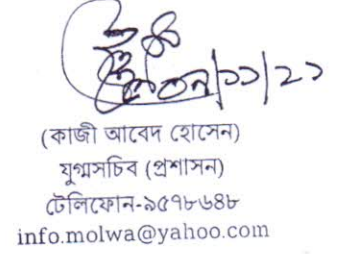 (কাজী আবেদ হোসেন)
যুগ্মসচিব (প্রশাসন)
টেলিফোন-৯৫৭৮৬৪৮
info.molwa@yahoo.com